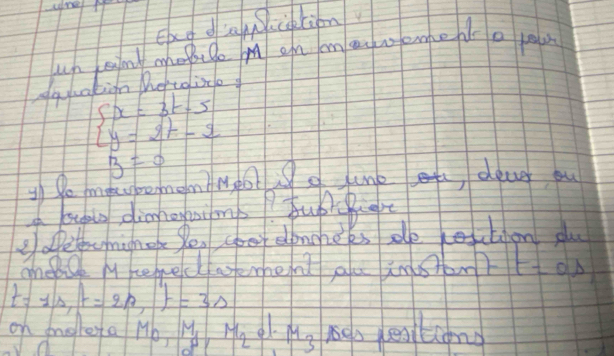 Exo d'application
un point mobile M en mouvement a pour
équation horaire :
x = 3t - 5
y = 2t - 2
z = 0
1) Le mouvement M est il a une ou, deux ou
a trois dimensions ? Justifier
2) Déterminer les coordonnées de position du
mobile M respectivement au instant t = 0s,
t = 1s, t = 2s, t = 3s
on notera M0, M1, M2 et M3 ses positions